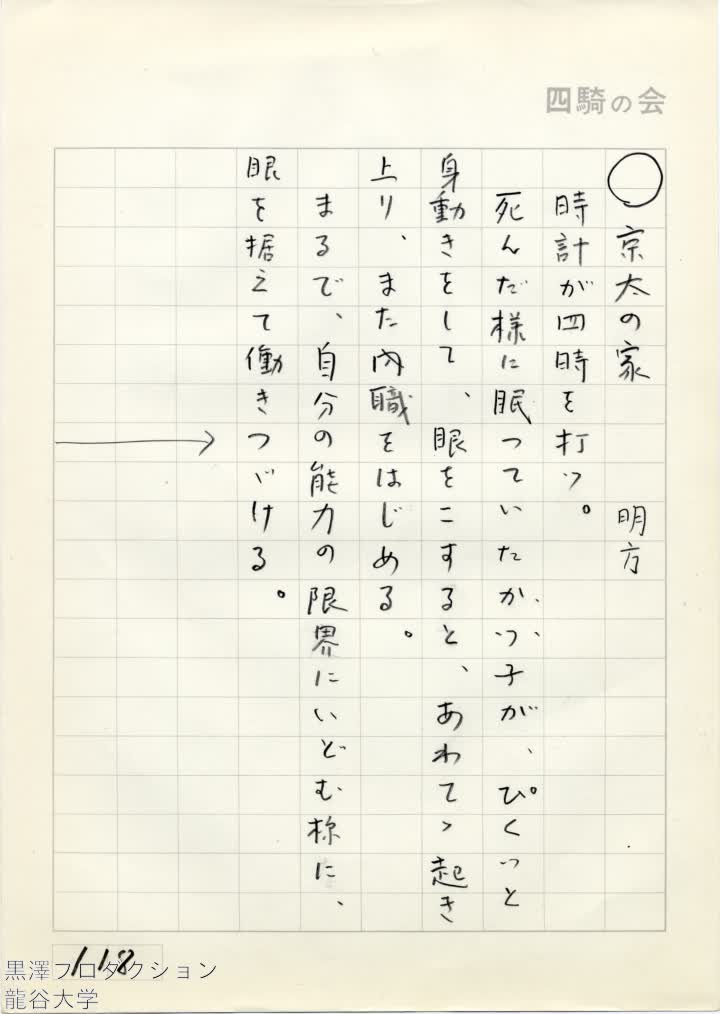 四騎の会
○京太の家　　　明方
時計が四時を打つ。
死んだ様に眠っていたかつ子が、ぴくっと
身動きをして、眼をこすると、あわてゝ起き
上り、また内職をはじめる。
まるで、自分の能力の限界にいどむ様に、
眼を据えて働きつゞける。
118
黒澤プロダクション
龍谷大学